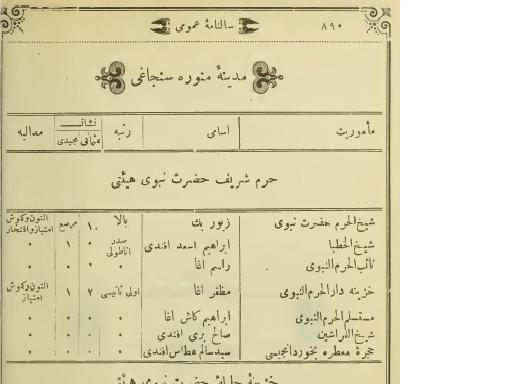 ٨٩٠ سالنامهٔ عمومی
مدینهٔ منوره سنجاغی
مأموریت اسامی رتبه نشان عثمانی مجیدی مدالیه
حرم شریف حضرت نبوی هیئتی
شیخ الحرم حضرت نبوی زیور بك بالا ١٠ مرصع التون وكموش امتیاز وافتخار
شیخ الخطبا ابراهیم اسعد افندی صدر اناطولی ٠ ١ ٠
نائب الحرم النبوی راسم اغا ٠ ٠ ٠ ٠
خزینه دار الحرم النبوی مظفر اغا اولی ثانیسی ٢ ١ التون وكموش امتیاز
مستسلم الحرم النبوی ابراهیم كاش اغا ٠ ٠ ٠ ٠
شیخ الفراشین صالح بری افندی ٠ ٠ ٠ ٠
حجرهٔ معطره بخوردانجیسی سید سالم عطاس افندی ٠ ٠ ٠ ٠